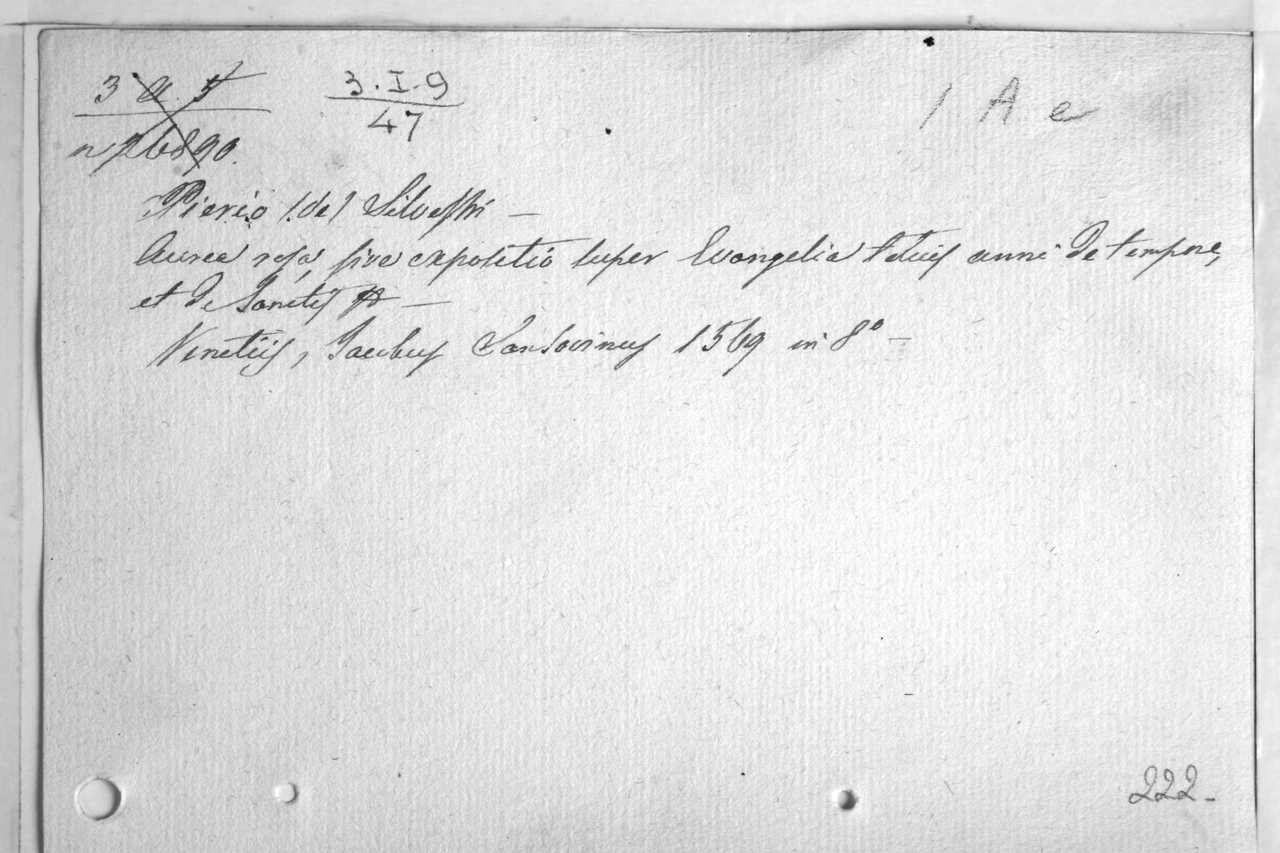 3 a. 5
3. I. 9
1 A e
n 26890.
47
Pierio (de) Silvestri —
Aurea rosa, sive expositio super Evangelia totius anni de tempore,
et de Sanctis —
Venetiis, Jacobus Sansovinus 1569 in 8° —
222.-